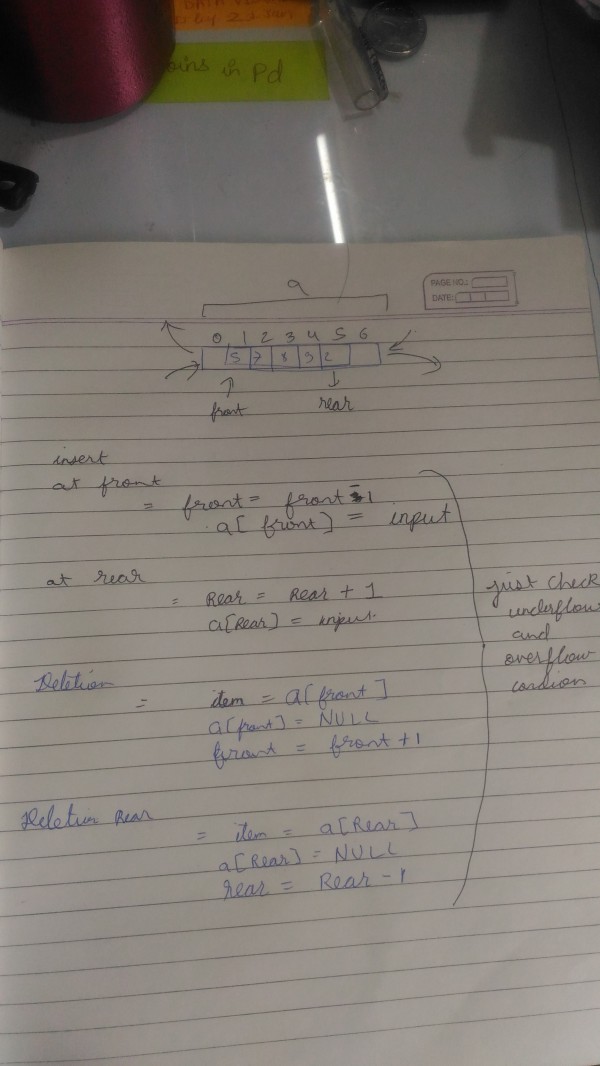 by 21 Jan
oins in Pd
PAGE NO.:
DATE:
a
0 1 2 3 4 5 6
5 7 8 9 2
front rear
insert
at front
= front = front - 1
a[front] = input
at rear
= Rear = Rear + 1
a[Rear] = input.
just check
underflow
and
overflow
Deletion
= item = a[front]
a[front] = NULL
front = front + 1
Deletion Rear
= item = a[Rear]
a[Rear] = NULL
rear = Rear - 1